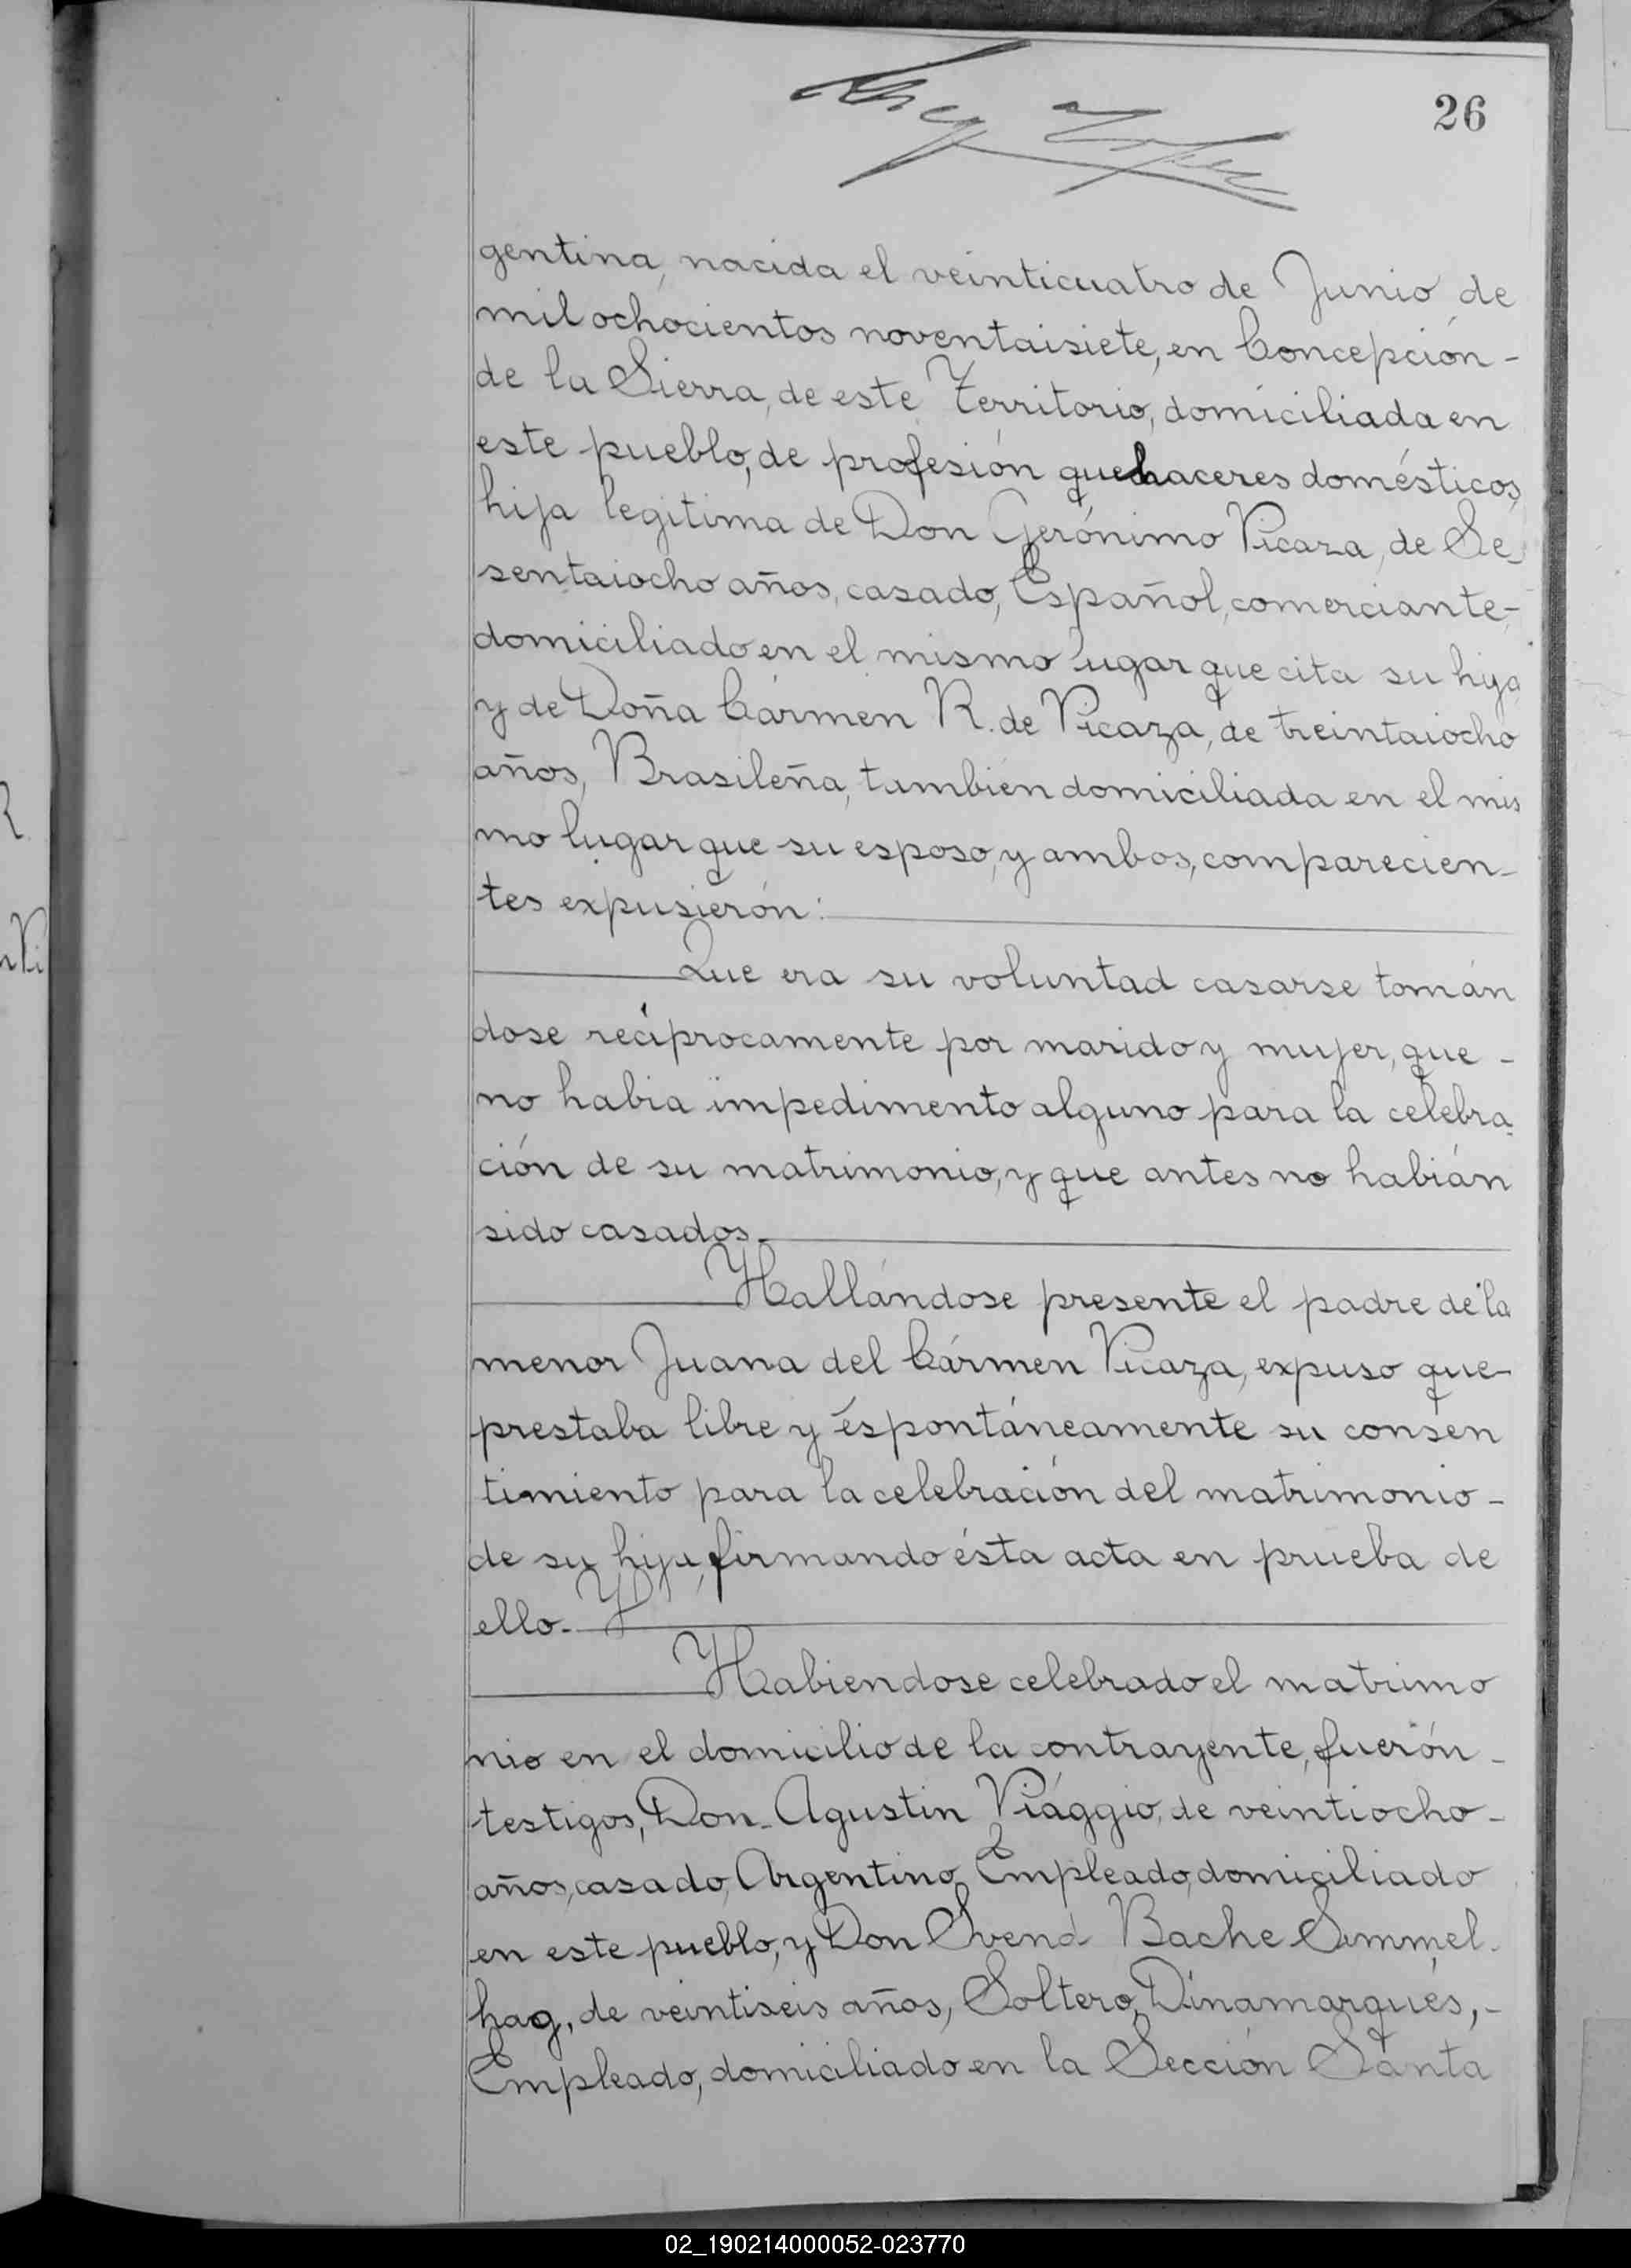 26
gentina, nacida el veinticuatro de Junio de
mil ochocientos noventaisiete, en Concepción -
de la Sierra, de este Territorio, domiciliada en
este pueblo, de profesión quehaceres domésticos,
hija legitima de Don Gerónimo Vicaza, de Se_
sentaiocho años, casado, Español, comerciante,-
domiciliado en el mismo lugar que cita su hija
y de Doña Cármen R. de Vicaza, de treintaiocho
años, Brasileña, tambien domiciliada en el mis
mo lugar que su esposo, y ambos, comparecien_
tes expusierón:
Que era su voluntad casarse tomán
dose recíprocamente por marido y mujer, que -
no habia impedimento alguno para la celebra_
ción de su matrimonio, y que antes no habián
sido casados.
Hallándose presente el padre de la
menor Juana del Cármen Vicaza, expuso que-
prestaba libre y éspontáneamente su consen
timiento para la celebración del matrimonio -
de su hija, firmando ésta acta en prueba de
ello.
Habiendose celebrado el matrimo
nio en el domicilio de la contrayente, fuerón -
testigos, Don Agustin Viággio, de veintiocho -
años, casado, Argentino, Empleado, domiciliado
en este pueblo, y Don Svend Bache Simmel_
hag, de veintiseis años, Soltero, Dinamarqués, -
Empleado, domiciliado en la Sección Santa
02_190214000052-023770